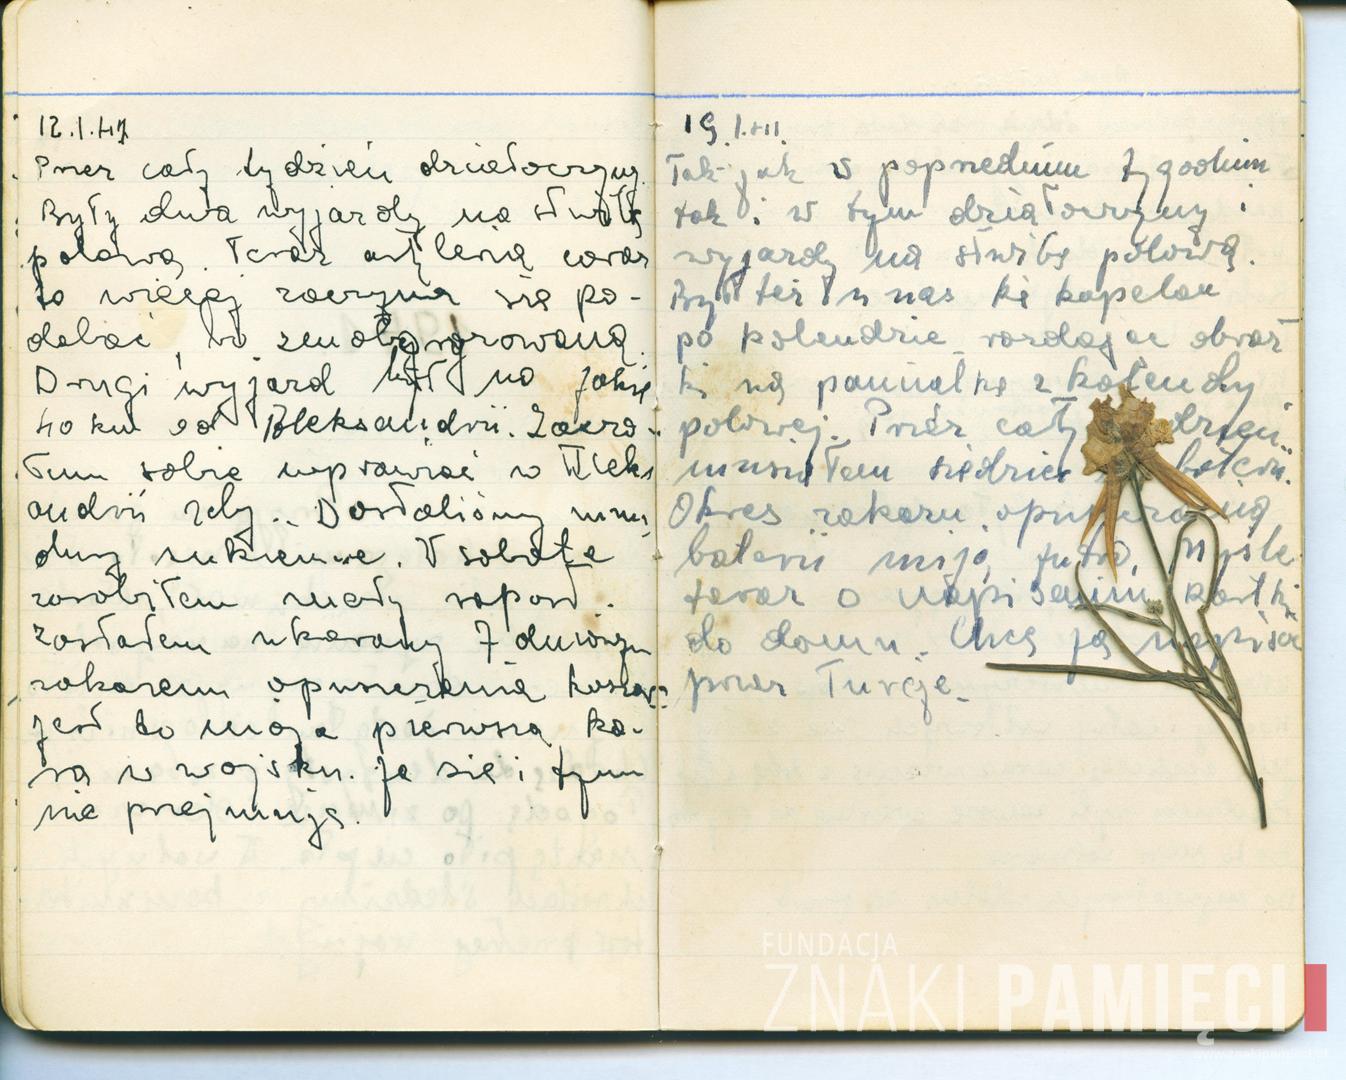 12.I.42
Przez cały tydzień działoczyny.
Były dwa wyjazdy na służbę
polową. Teraz artyleria coraz
to więcej zaczyna się po-
dobać, bo zmotoryzowana.
Drugi wyjazd był na jakie
40 km od Aleksandrii. Zaczo-
łem sobie wprawiać w Aleks
andrii zęby.. Dostaliśmy mun-
dury sukienne. W sobotę
zarobiłem mały raport.
Zostałem ukarany 7 dniowym
zakazem opuszczenia koszar.
Jest to moja pierwsza ka-
ra w wojsku. Ja się i tym
nie przejmuję.
19.I.42.
Tak jak w poprzednim tygodniu
tak i w tym działoczyny i
wyjazdy na służbę polową.
Był też u nas ks kapelan
po kolendzie rozdając obraz
ki na pamiątkę z kolendy
polowej. Przez cały dzień
musiałem siedzieć baterii.
Okres zakazu opuszczania
baterii mija jutro. Myślę
teraz o napisaniu kartki
do domu. Chcę ją napisać
przez Turcję.
FUNDACJA
ZNAKI PAMIĘCI